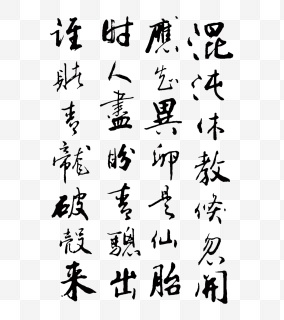 混沌休教倏忽開
應知異卵是仙胎
時人盡盼青驄出
誰睹青龍破殼来